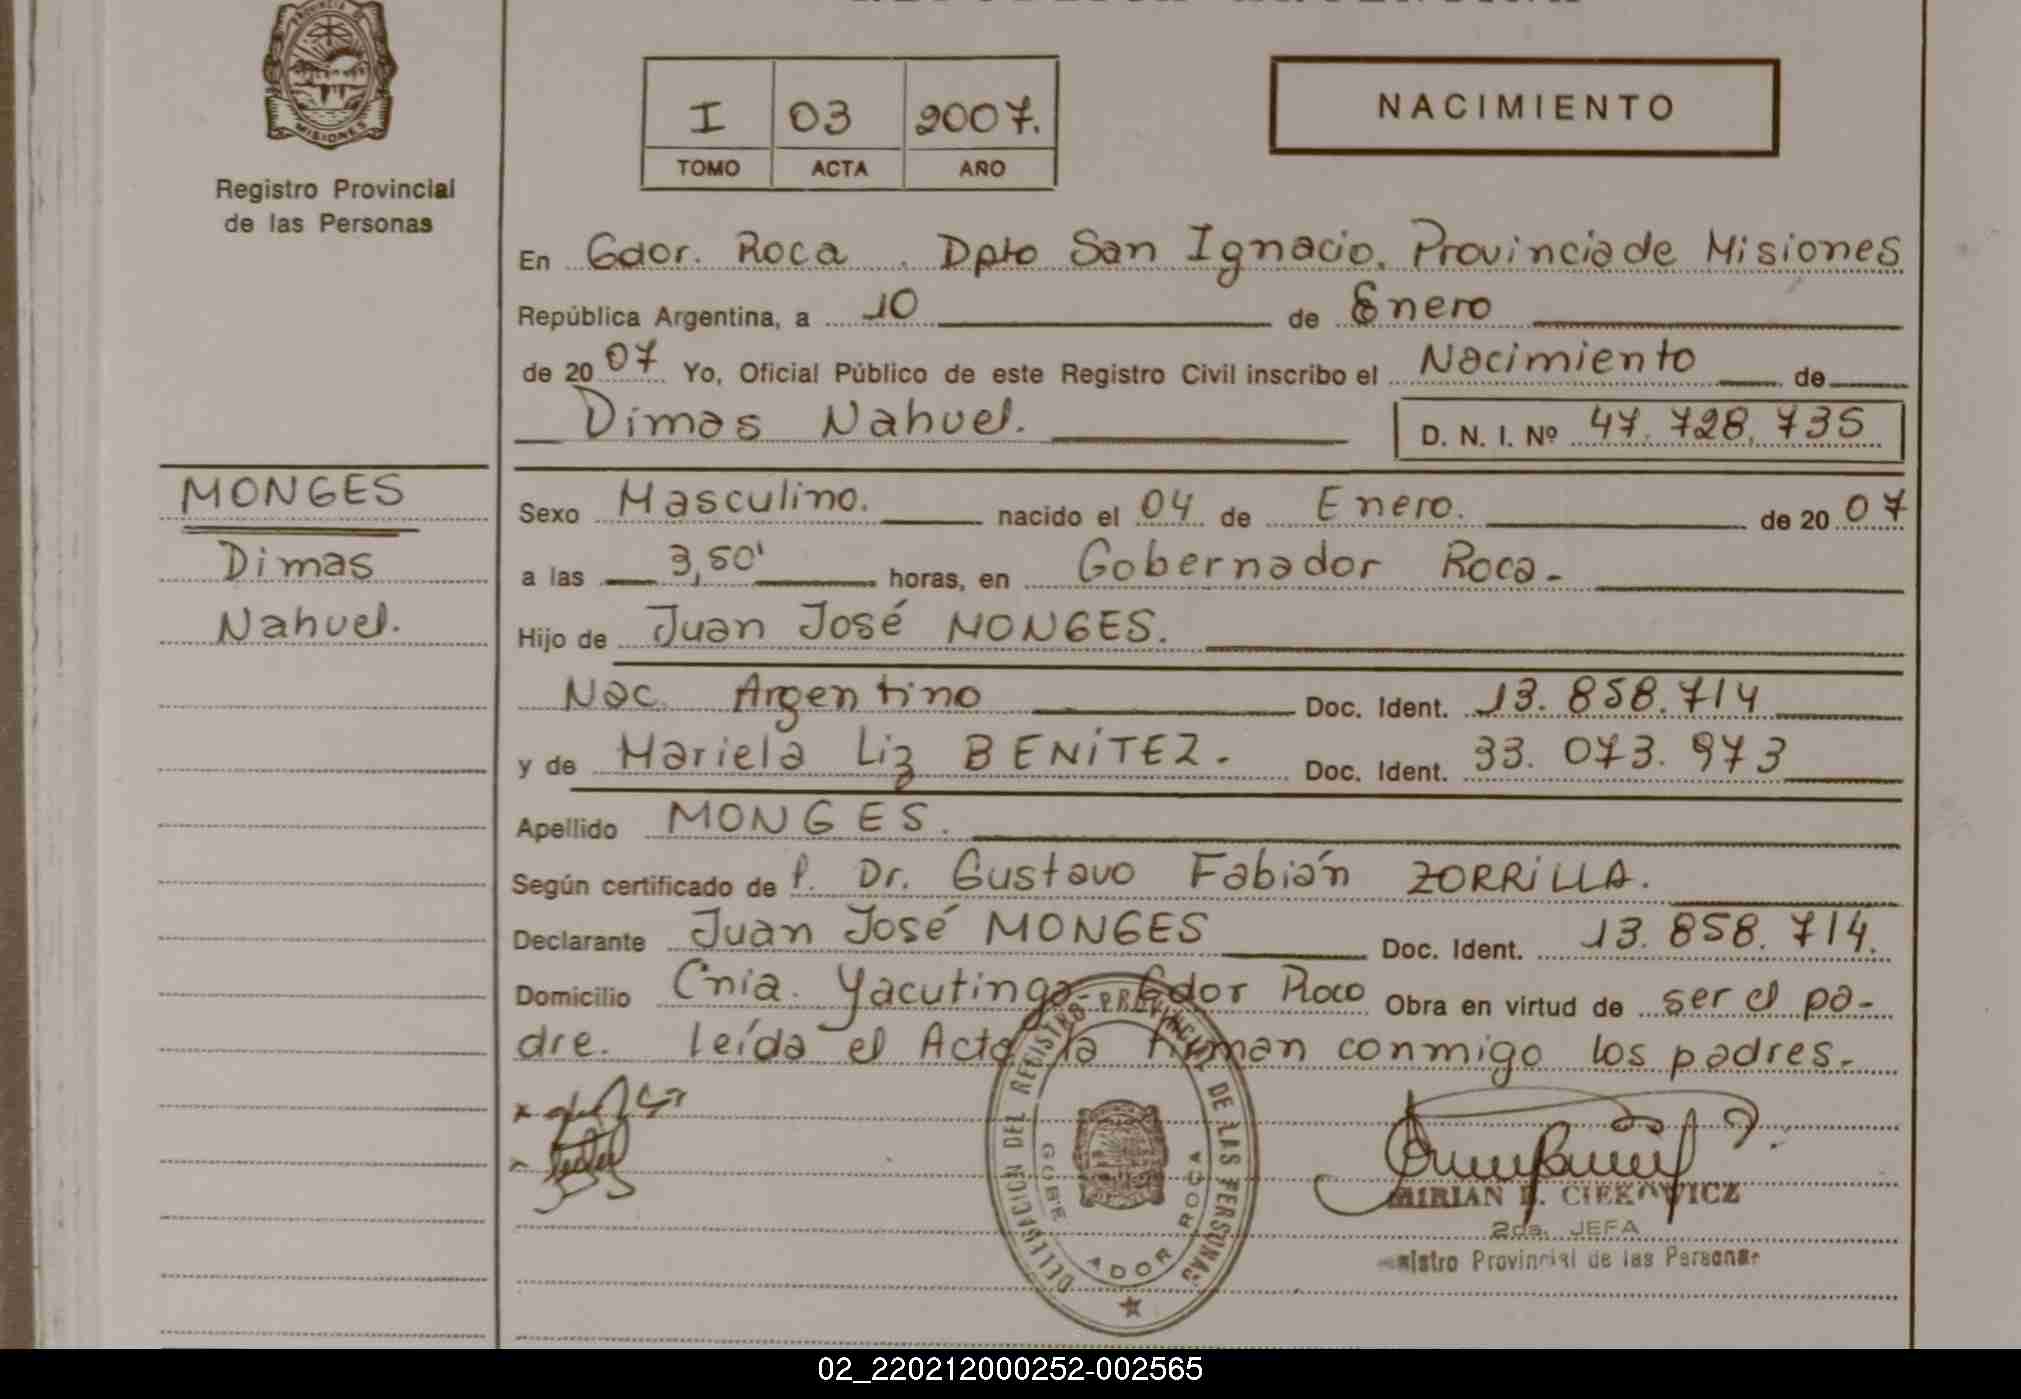 PROVINCIA DE
MISIONES
Registro Provincial
de las Personas
REPUBLICA ARGENTINA
I 03 2007.
TOMO ACTA AÑO
NACIMIENTO
En Gdor. Roca. Dpto San Ignacio. Provincia de Misiones
República Argentina, a 10 de Enero
de 2007 Yo, Oficial Público de este Registro Civil inscribo el Nacimiento de
Dimas Nahuel. D. N. I. Nº 47.728.735
MONGES
Dimas
Nahuel.
Sexo Masculino. nacido el 04 de Enero. de 2007
a las 3,50' horas, en Gobernador Roca-
Hijo de Juan José MONGES.
Nac. Argentino Doc. Ident. 13.858.714
y de Mariela Liz BENÍTEZ. Doc. Ident. 33.073.973
Apellido MONGES.
Según certificado de P. Dr. Gustavo Fabián ZORRILLA.
Declarante Juan José MONGES Doc. Ident. 13.858.714.
Domicilio Cnia. Yacutinga- Gdor Roca Obra en virtud de ser el pa-
dre. Leída el Acta la firman conmigo los padres.-
DELEGACION DEL REGISTRO PROVINCIAL DE LAS PERSONAS
GOBERNADOR ROCA
MIRIAN CIEKOWICZ
2da. JEFA
Registro Provincial de las Personas
02_220212000252-002565